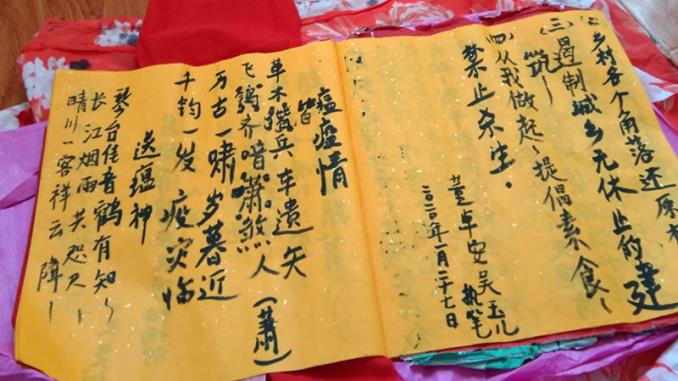 (二)乡村各个角落还原
(三)遏制城乡无休止的建
筑~
(四)从我做起~提倡素食~
禁止杀生。
卓安吴玉儿执笔
二〇二〇年一月二十七日
瘟疫情
皆
草木兵车遗矢
飞鸦齐喑萧煞人(萧)
万古一啸岁暮近
千钧一发疫灾临
送瘟神
琴台佳音鹤有知~
长江烟雨共咫尺~
晴川一客祥云降~